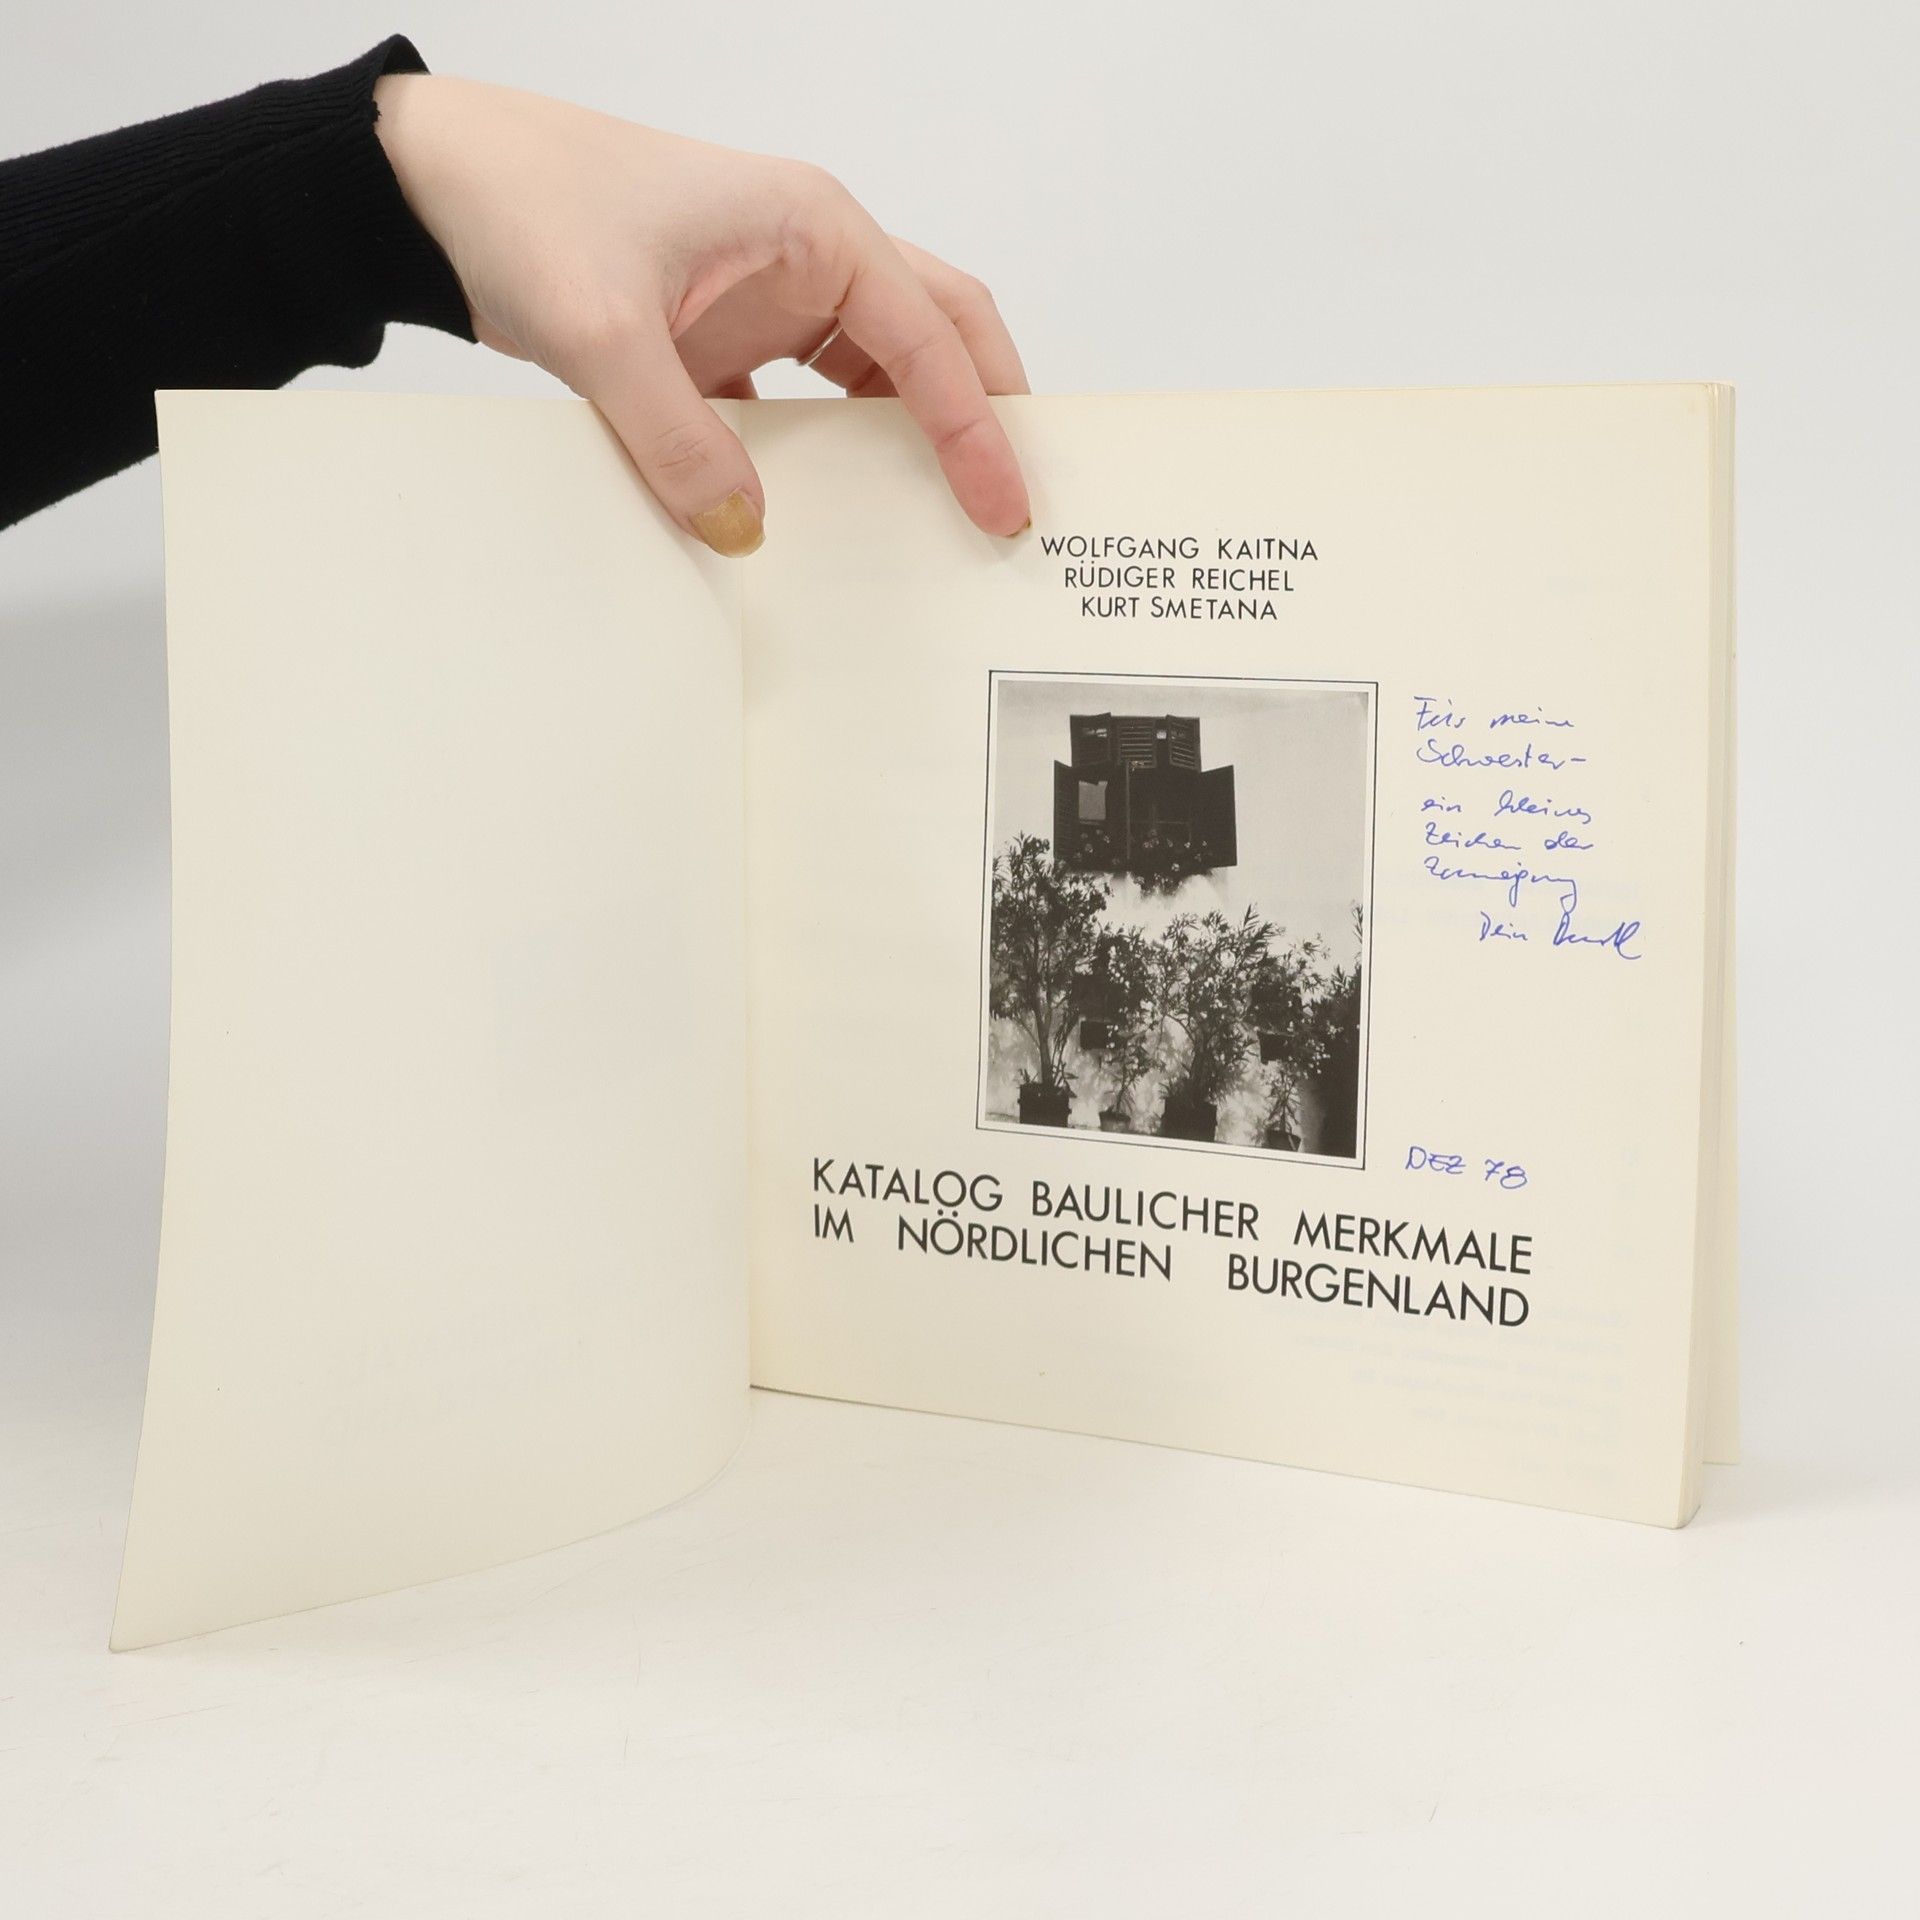 WOLFGANG KAITNA
RÜDIGER REICHEL
KURT SMETANA
Für meine
Schwester-
ein kleines
Zeichen der
Zuneigung
Dein
DEZ 78
KATALOG BAULICHER MERKMALE
IM NÖRDLICHEN BURGENLAND